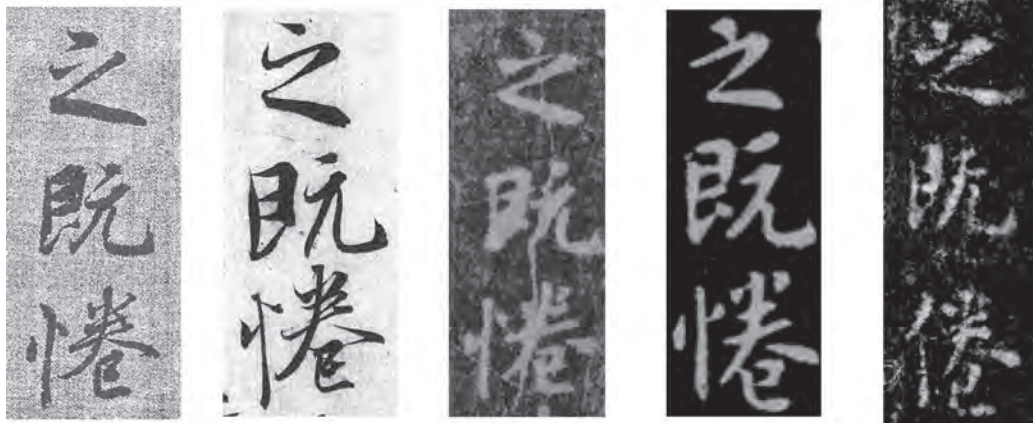 之既惓
之既惓
之既惓
之既惓
之既惓